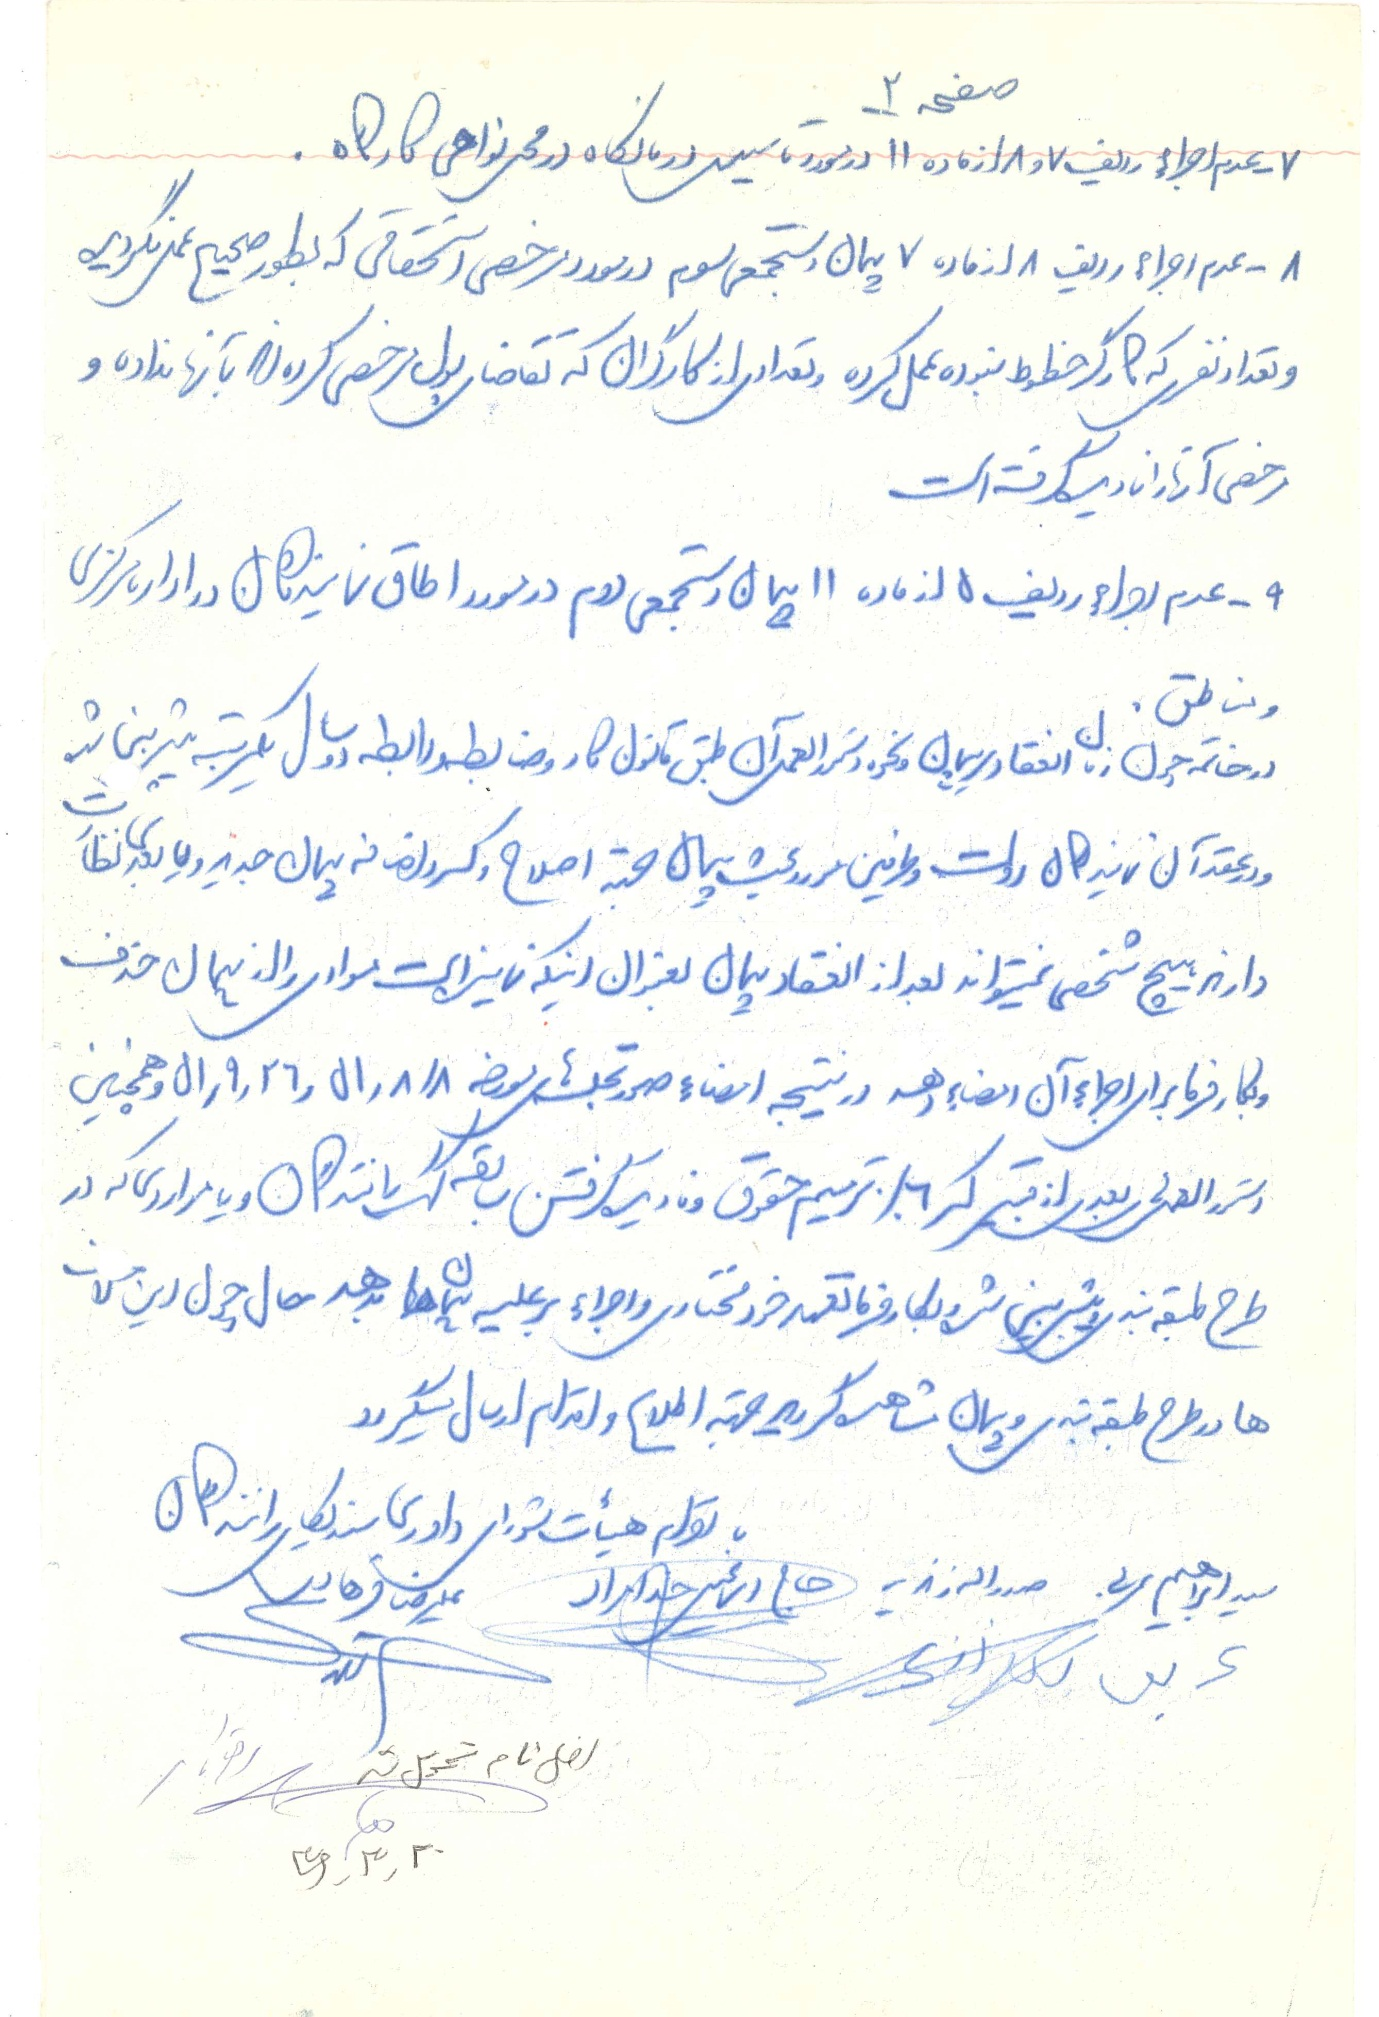 صفحه ۲
۷- عدم اجراء ردیف ۷ و ۸ از ماده ۱۱ در مورد تاسیس درمانگاه در محل نواحی کارگاه .
۸- عدم اجراء ردیف ۸ از ماده ۷ پیمان دستجمعی سوم در مورد مرخصی استحقاقی که بطور صحیح عمل نگردیده
و تعداد نفری که کارگر خطوط نبوده عمل کرده و تعدادی از کارگران که تقاضای پول مرخصی کرده‌اند بآنها نداده و
مرخصی آنها را نادیده گرفته است
۹- عدم اجراء ردیف ۵ از ماده ۱۱ پیمان دستجمعی دوم در مورد اطاق نمایندگان در ادارات مرکزی
و مناطق .
در خاتمه چون زمان انعقاد پیمان و نحوه دستورالعمل آن طبق قانون کار و ضابطه و رابطه دو سال یکمرتبه پیش بینی شده
و در عقد آن نمایندگان دولت و طرفین مورد عیث پیمان جهة اصلاح و کسر و اضافه پیمان جدید و یا بعدی نظارت
دارند هیچ شخصی نمیتواند بعد از انعقاد پیمان بعنوان اینکه نماینده است موادی را از پیمان حذف
و بکارفرما برای اجراء آن امضاء دهد در نتیجه امضاء صورتجلسه‌های مورخه ۵۱/۸/۸ و ۵۱/۹/۲۶ و همچنین
دستورالعملهای بعدی از قبیل کسر ۶٪ ترمیم حقوق و نادیده گرفتن سابقه کمک رانندگان و یا مواردی که در
طرح طبقه بندی پیش بینی شده و بکارفرما تعهد خودمختاری و اجراء بر علیه پیمان ها بدهد حال چون این مشکلات
ها در طرح طبقه بندی و پیمان مشاهده گردید جهة اطلاع و اقدام ارسال میگردد
با تقدیم هیأت شورای داوری سندیکای رانندگان
سید ابراهیم عربی صدراله زند یه حاج خداداد علیرضا فرهادی
اصل نامه تحویل شد
۳۶/۳/۲۰